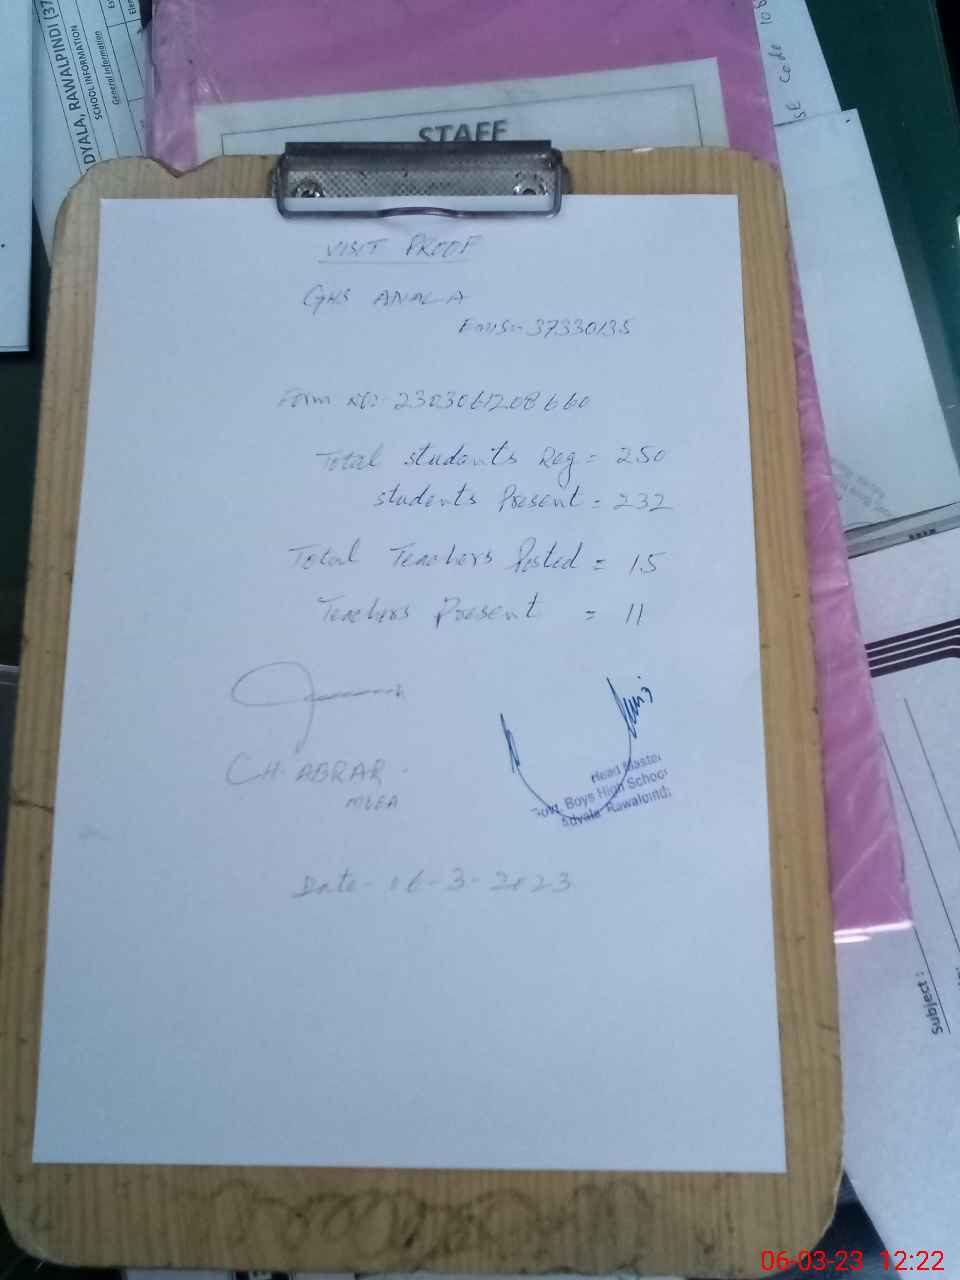 DYALA, RAWALPINDI (37
SCHOOL INFORMATION
General Information
STAFF
SE Code 108
VISIT PROOF
GHS ADYALA
EMIS:- 37330135
Form No:- 2303061208660
Total students Reg = 250
students Present = 232
Total Teachers Posted = 15
Teachers Present = 11
CH. ABRAR.
MEA
Head Master
Govt. Boys High School
Adyala Rawalpindi
Date- 06-3-2023
Subject :
06-03-23 12:22